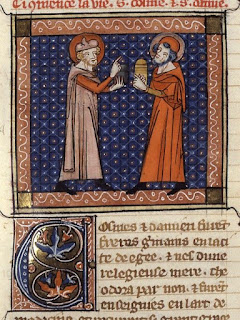 Ci gmence la vie. s. cosme. ⁊ .s. damie.
Cosmes ⁊ damien furet
freres g͛mains en la cite
te de egee. ⁊ nes dune
relegieuse mere. the
odora par non. ⁊ furet
enseignies en lart de